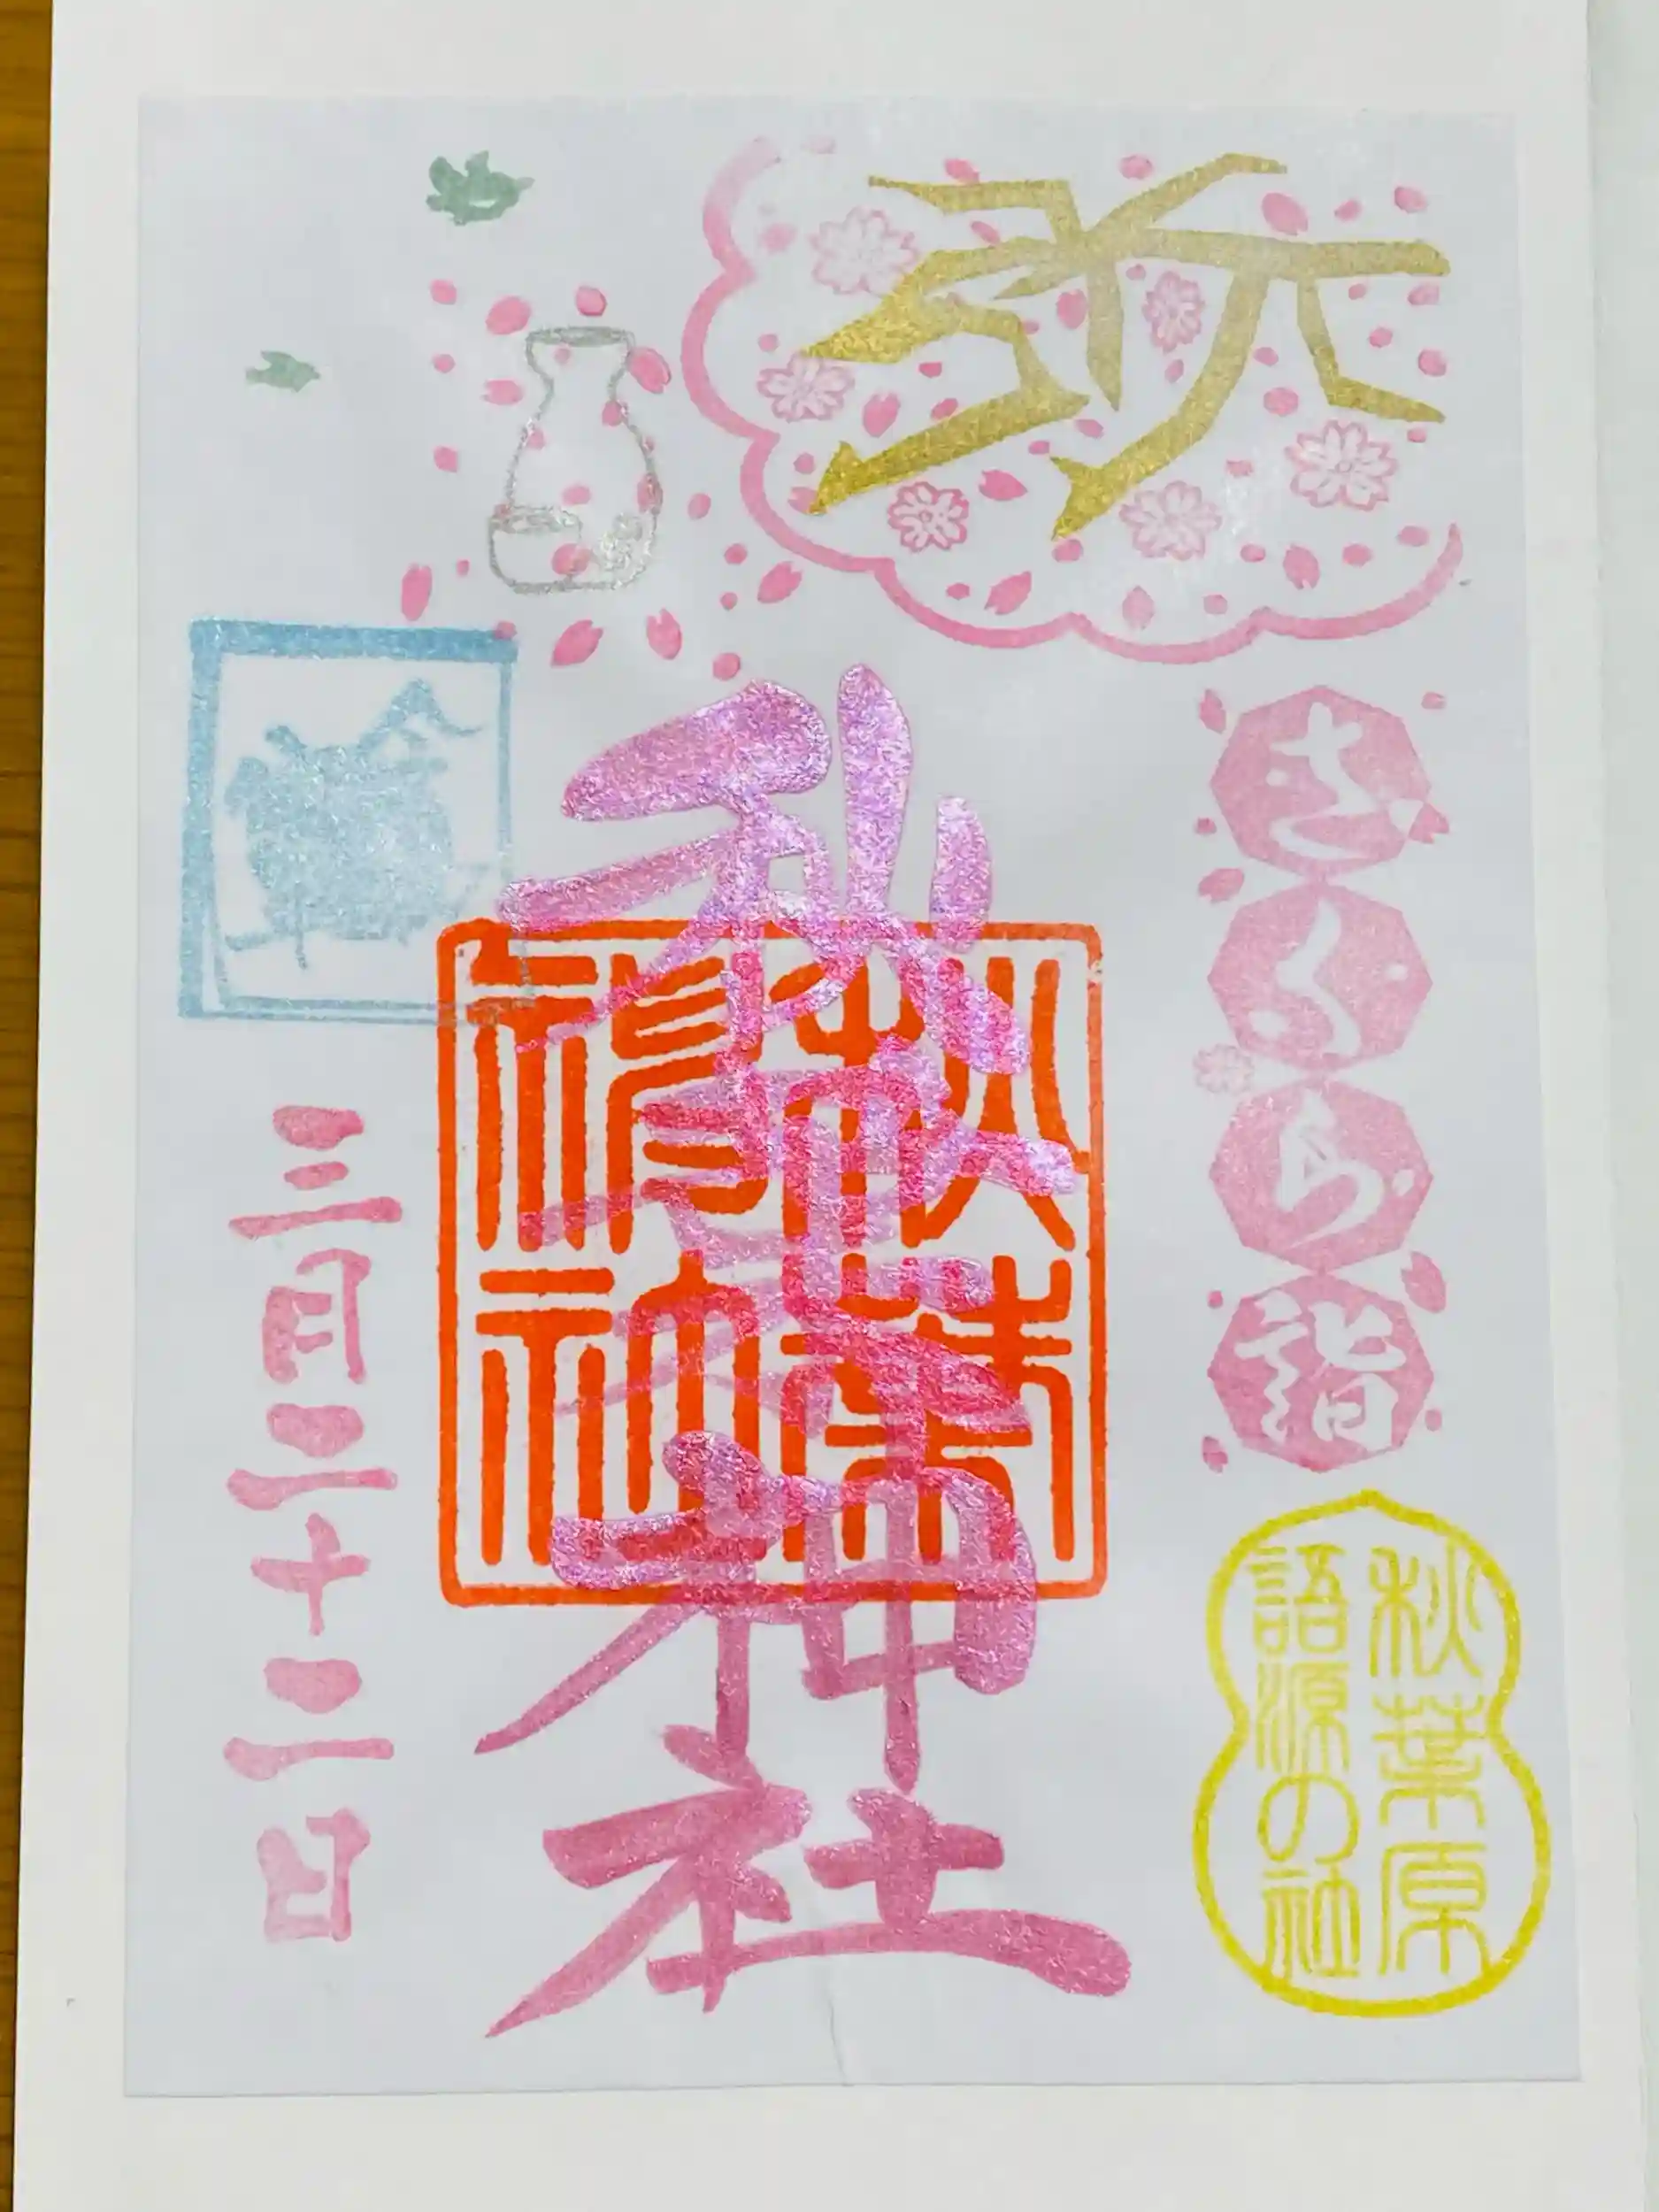 さくら詣
秋葉原
語源の社
秋葉神社
秋葉
神社
三月二十二日